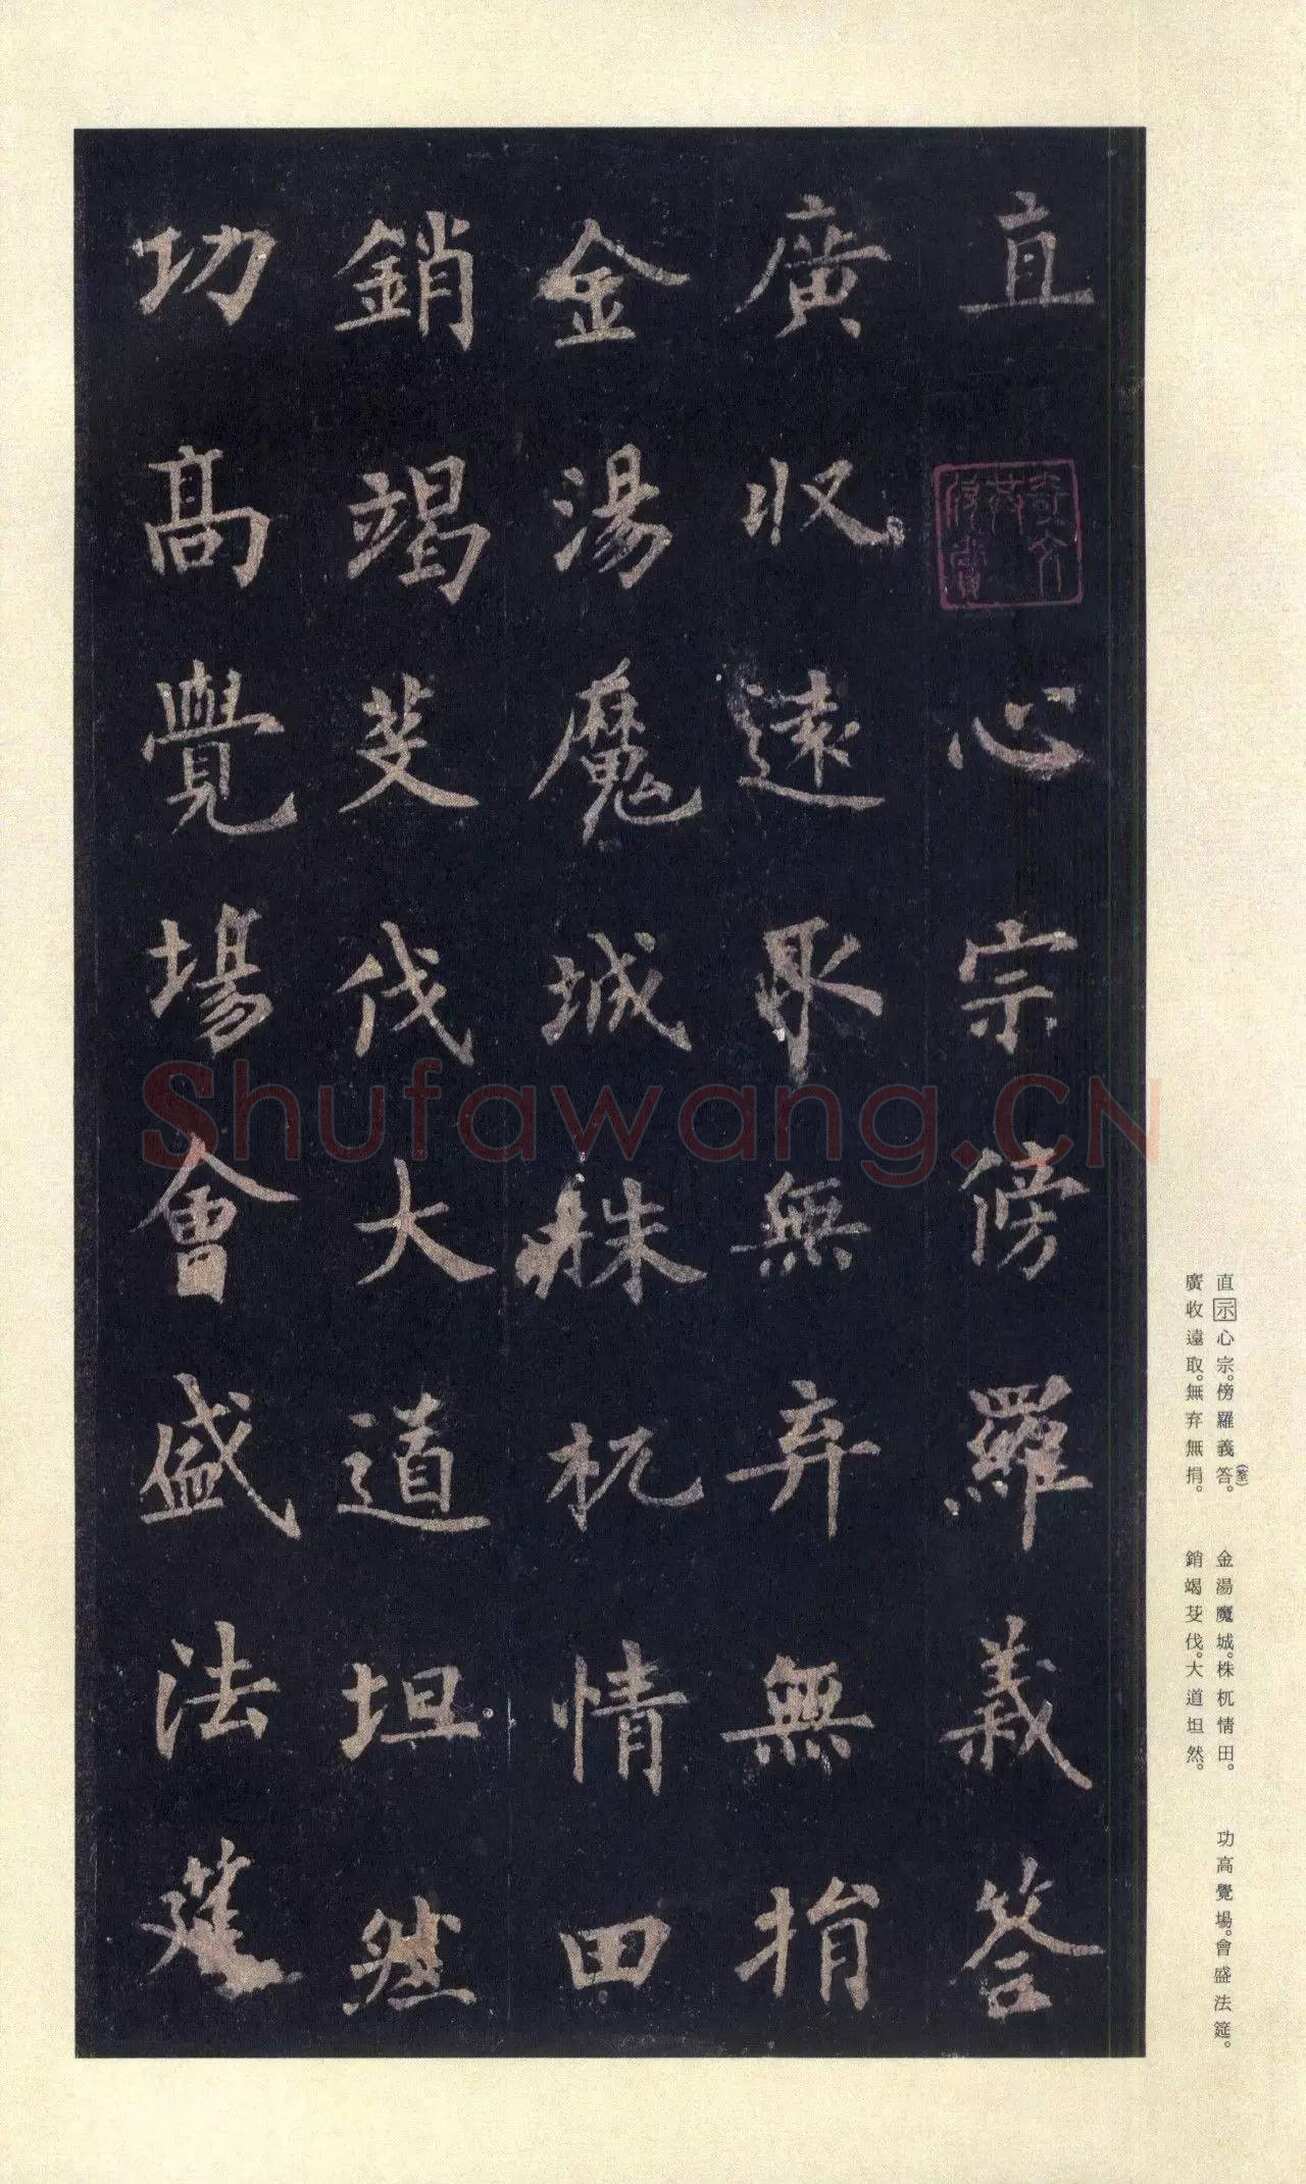 直心宗傍羅義答
廣收遠取無弃無捐
金湯魔城株杌情田
銷竭芟伐大道坦然
功高覺場會盛法筵
直示心宗。傍羅義答。
廣收遠取。無弃無捐。
金湯魔城。株杌情田。
銷竭芟伐。大道坦然。
功高覺場。會盛法筵。
Shufawang.CN